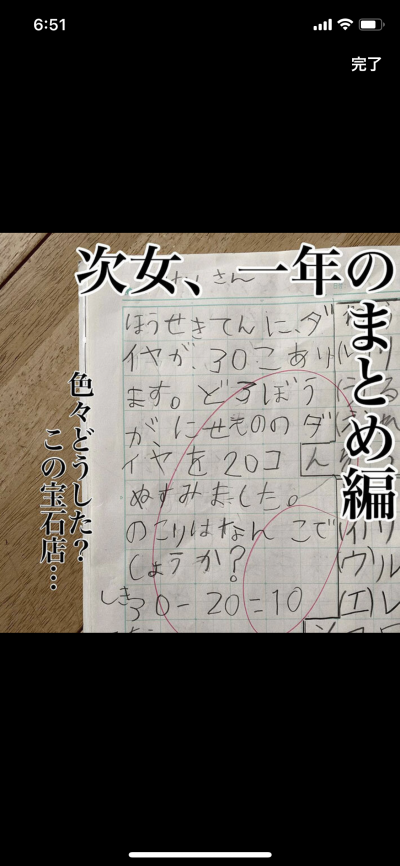 6:51
完了
次女、一年の
まとめ編
色々どうした？
この宝石店…
さん
ほうせきてんに、ダ
イヤが、30こあり
ます。どろぼう
が、にせもののダ
イヤを20コ
ぬすみました。
のこりはなん こで
しょうか?
しき30-20=10
ん
(イ)リ
(ウ)ル
(エ)レ